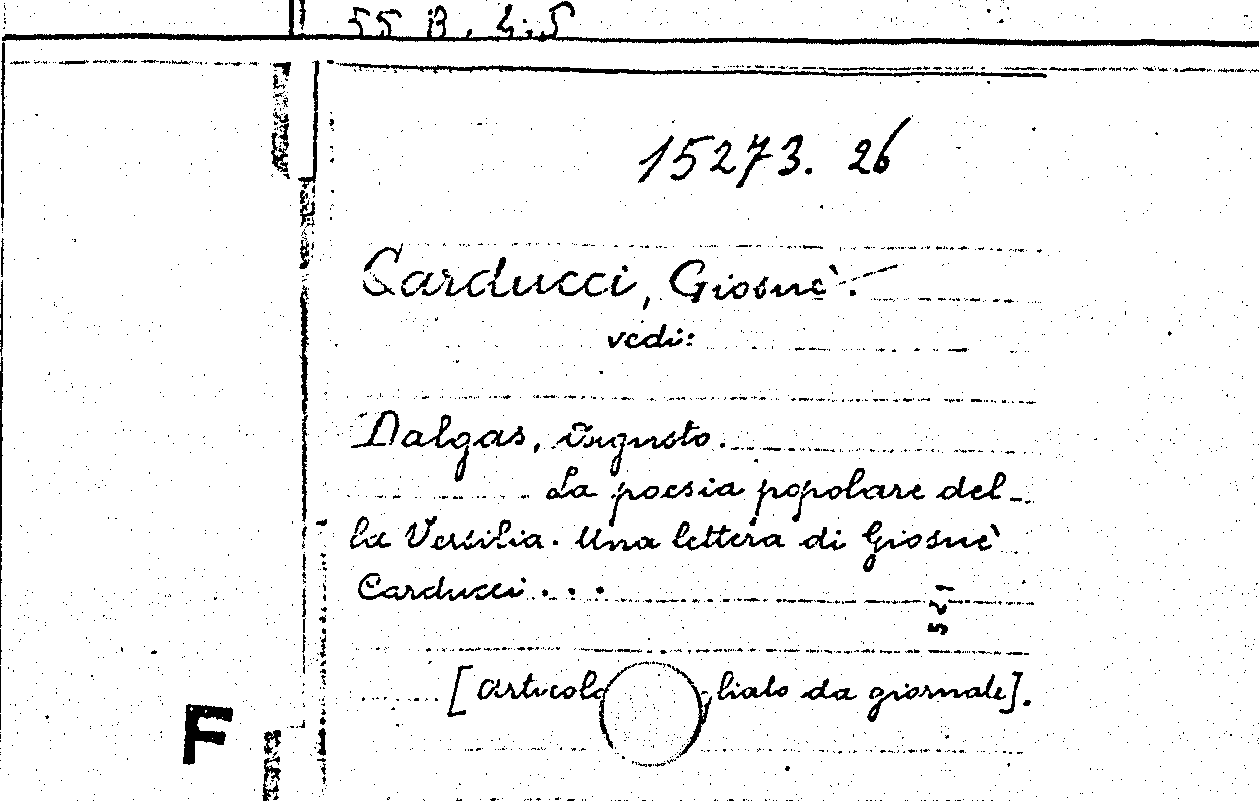 55 B. 4.5
15273. 26
Carducci, Giosuè.
vedi:
Dalgas, Augusto.
La poesia popolare del-
la Versilia. Una lettera di Giosuè
Carducci...
[Articolo liato da giornale].
F